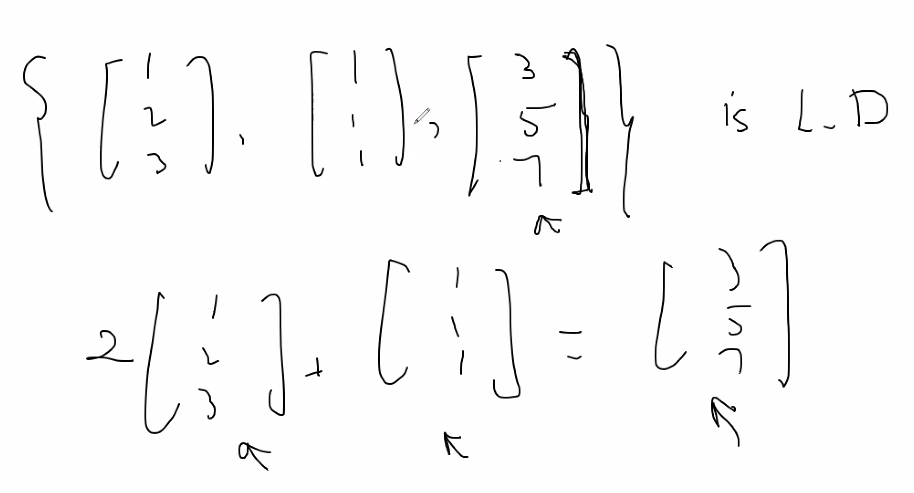 { [1 2 3], [1 1 1], [3 5 7] } is L.D
2 [1 2 3] + [1 1 1] = [3 5 7]